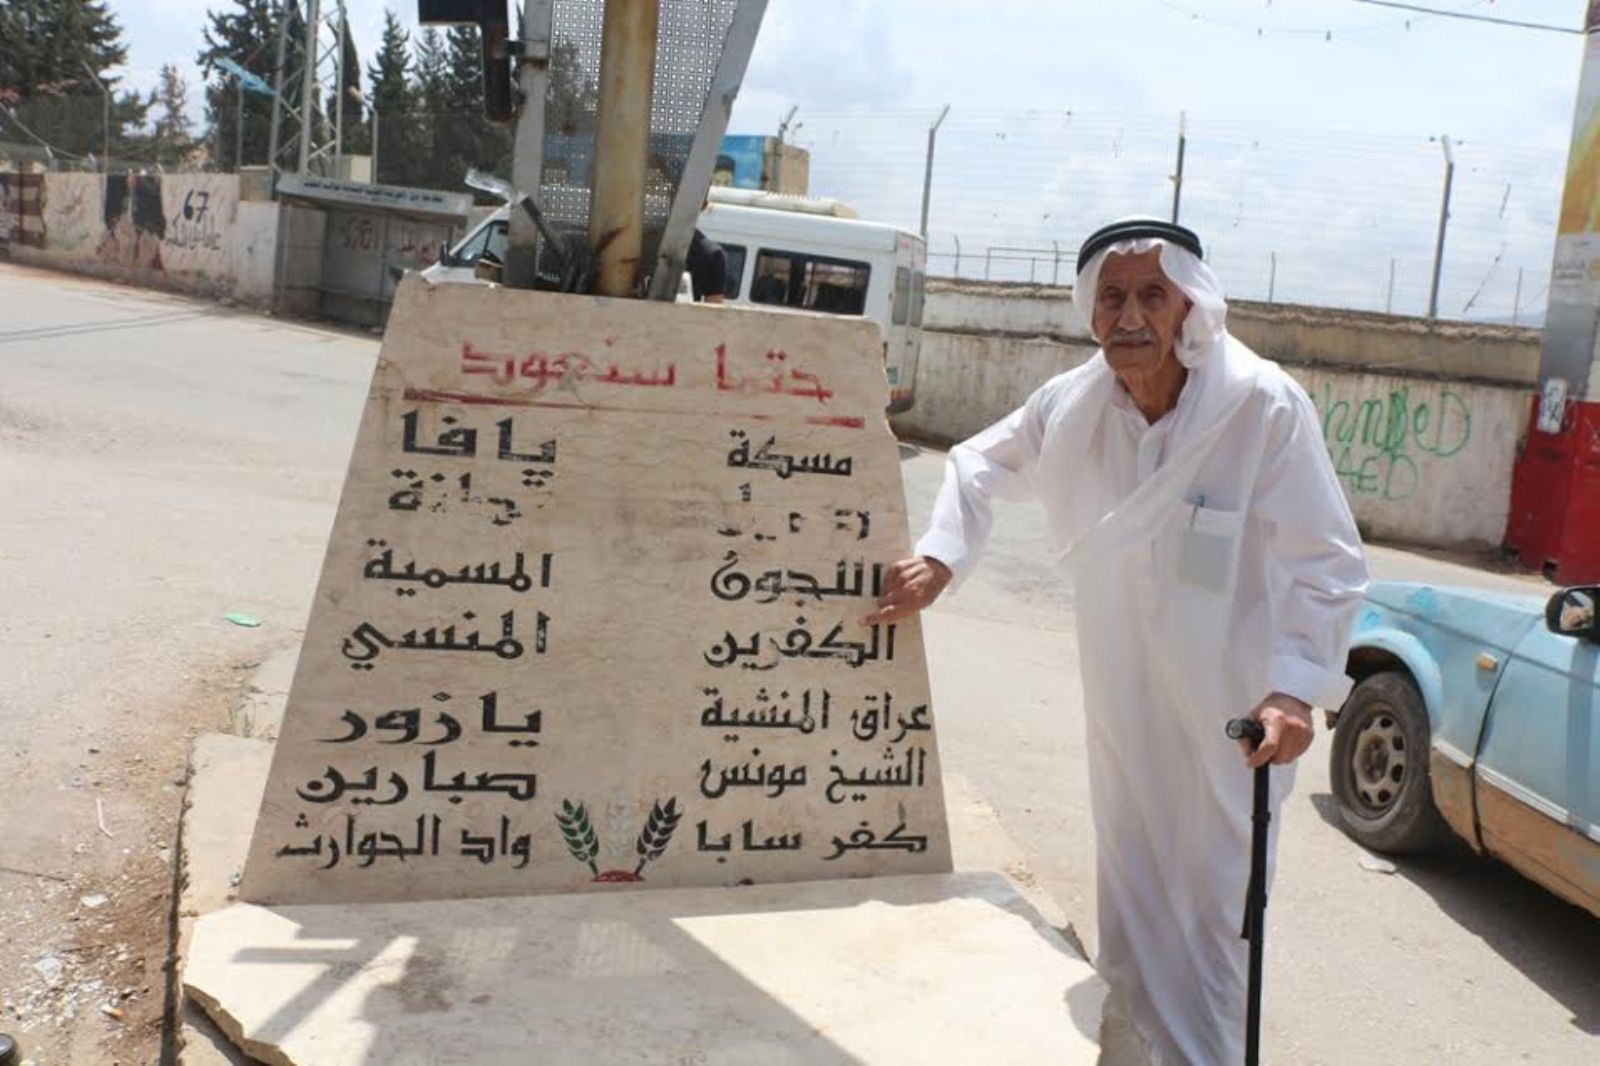 حتما سنعود
مسكة
اللجون
الكفرين
عراق المنشية
الشيخ مونس
كفر سابا
يافا
المسمية
المنسي
يازور
صبارين
واد الحوارث
67